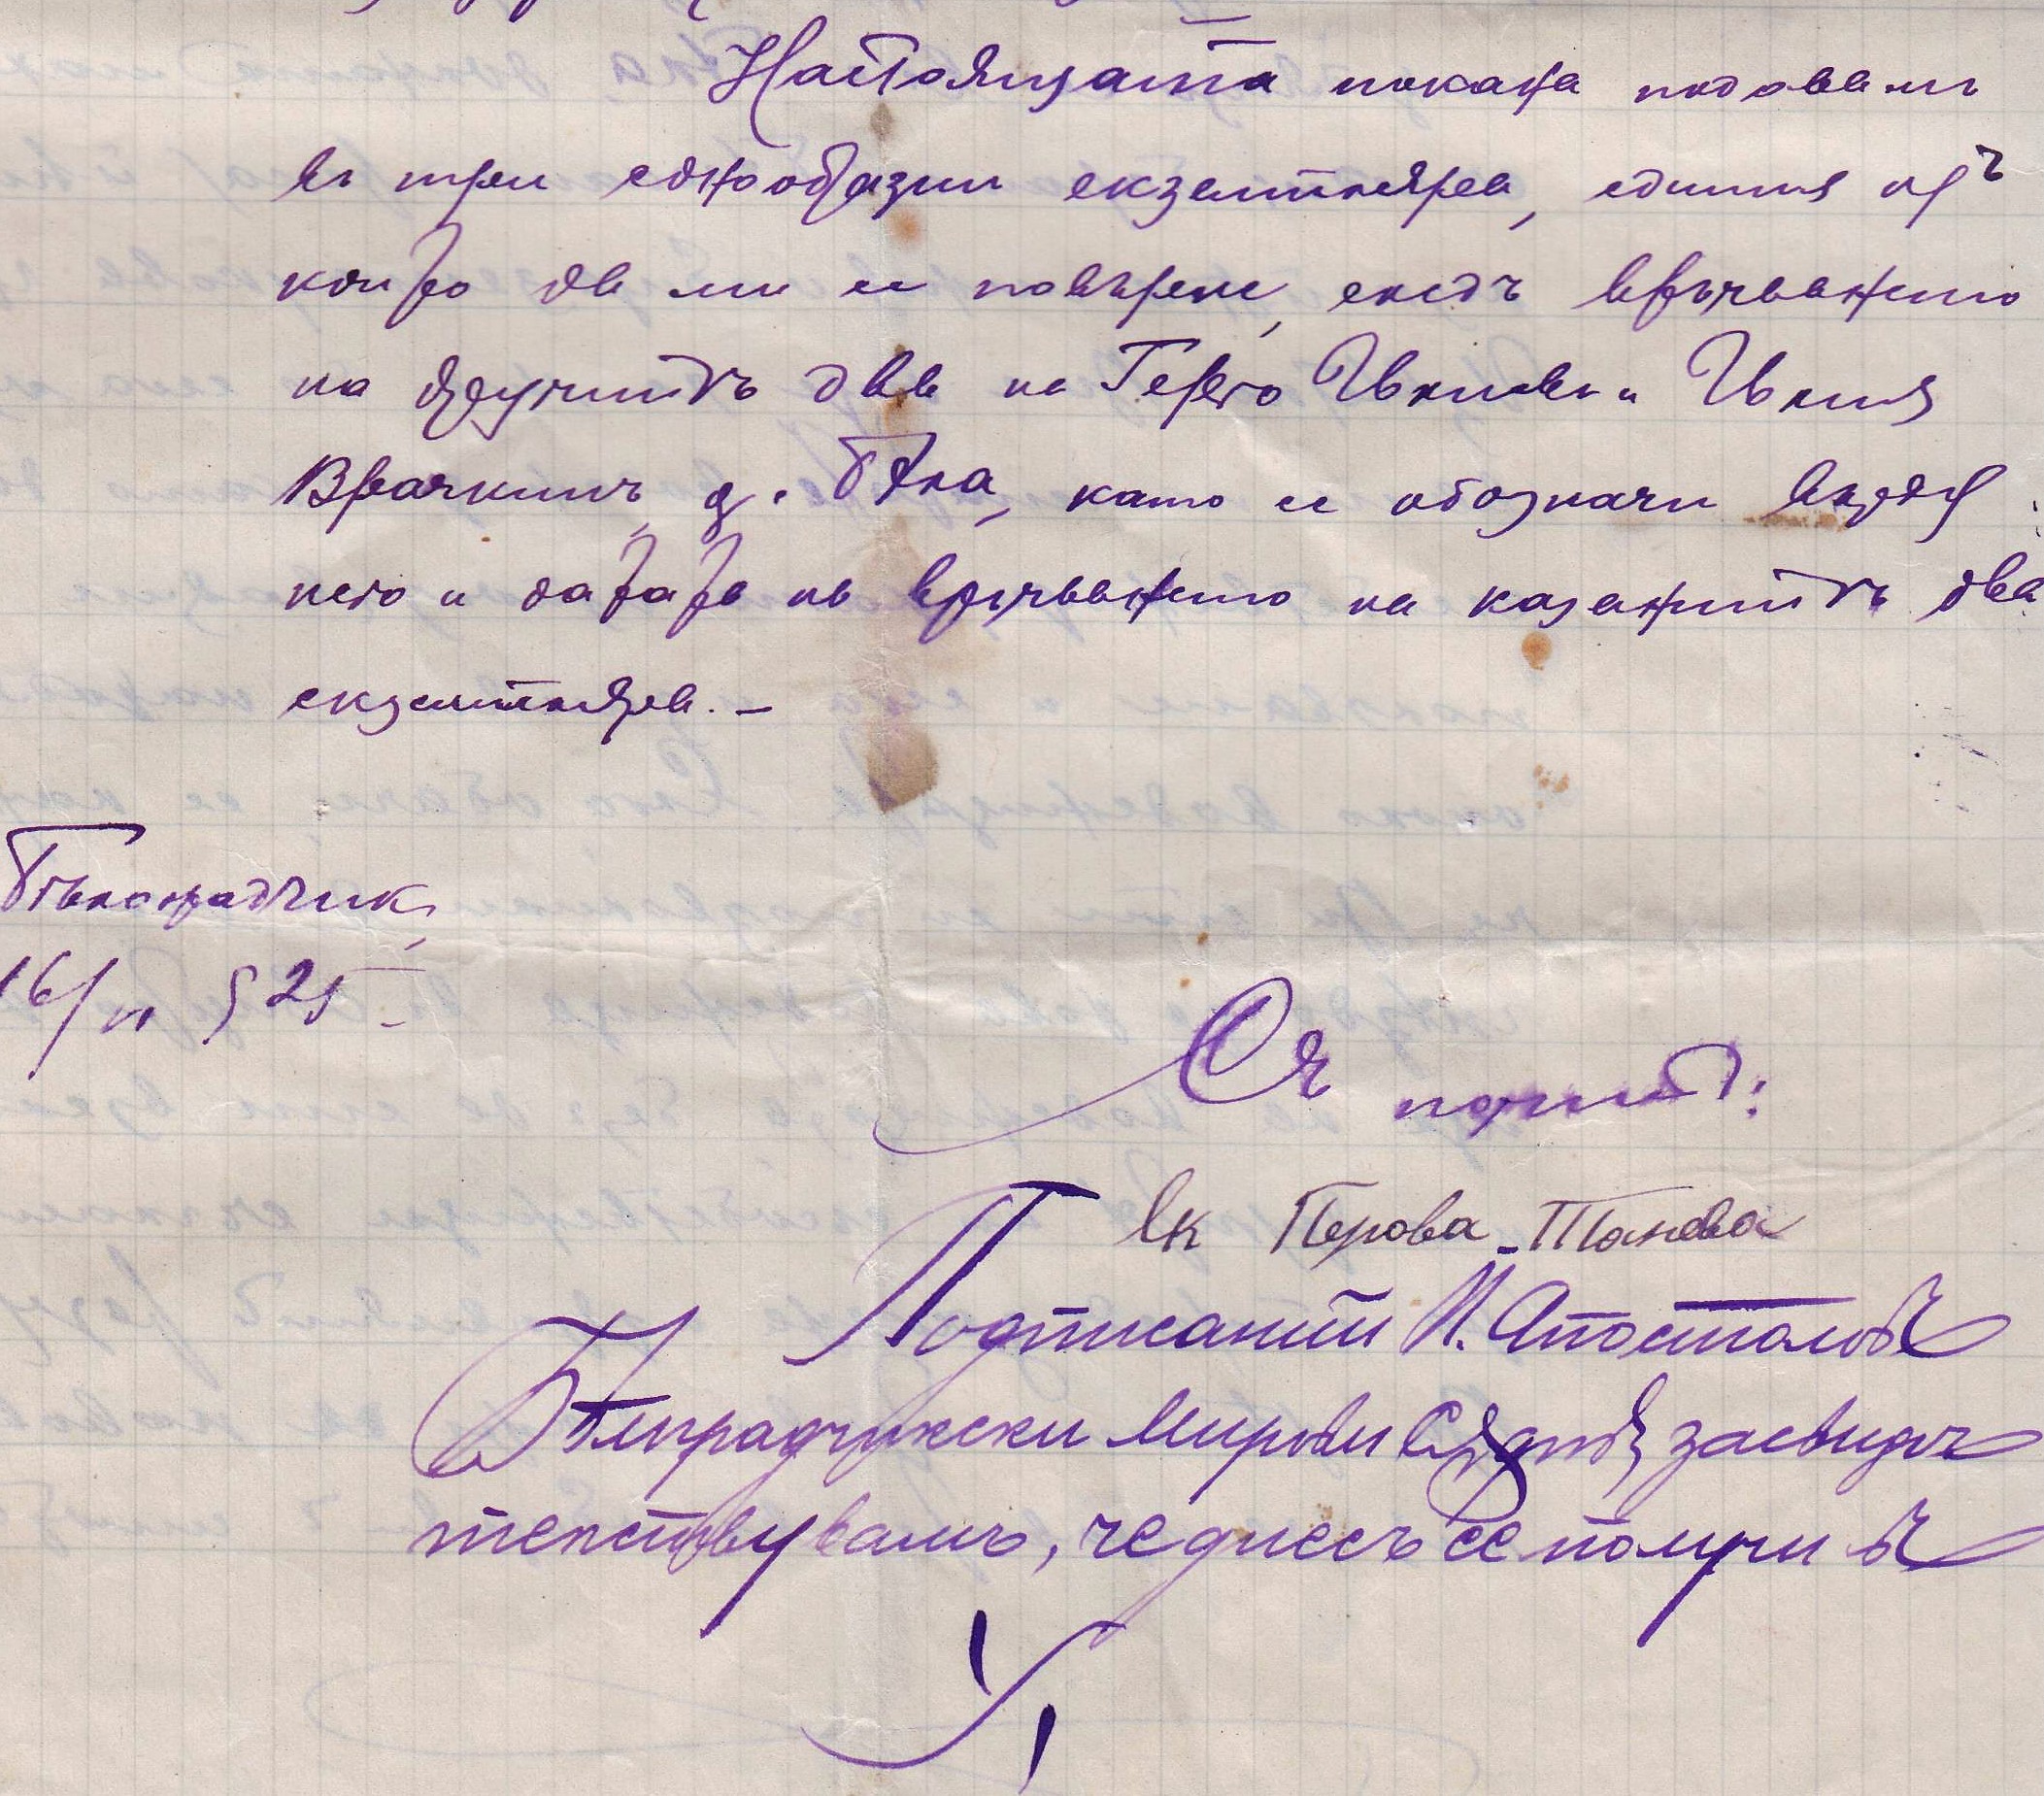 Настоящата покана подавамъ
въ три еднообразни екземпляра, единия отъ
които да ми се повърне, следъ връчването
на другитѣ два на Герго Ивановъ и Иния
Врачкинъ, с. Бѣла, като се обозначи върху
него и датата на връчването на казанитѣ два
екземпляра. –
Бѣлоградчик,
16/VI 925 –
Съ почитъ:
Ек Перова-Танова
Подписаний И. Апостоловъ
Бѣлградчишки Мирови Сѫдия засвидѣ
телствувамъ, че днесъ се получи въ